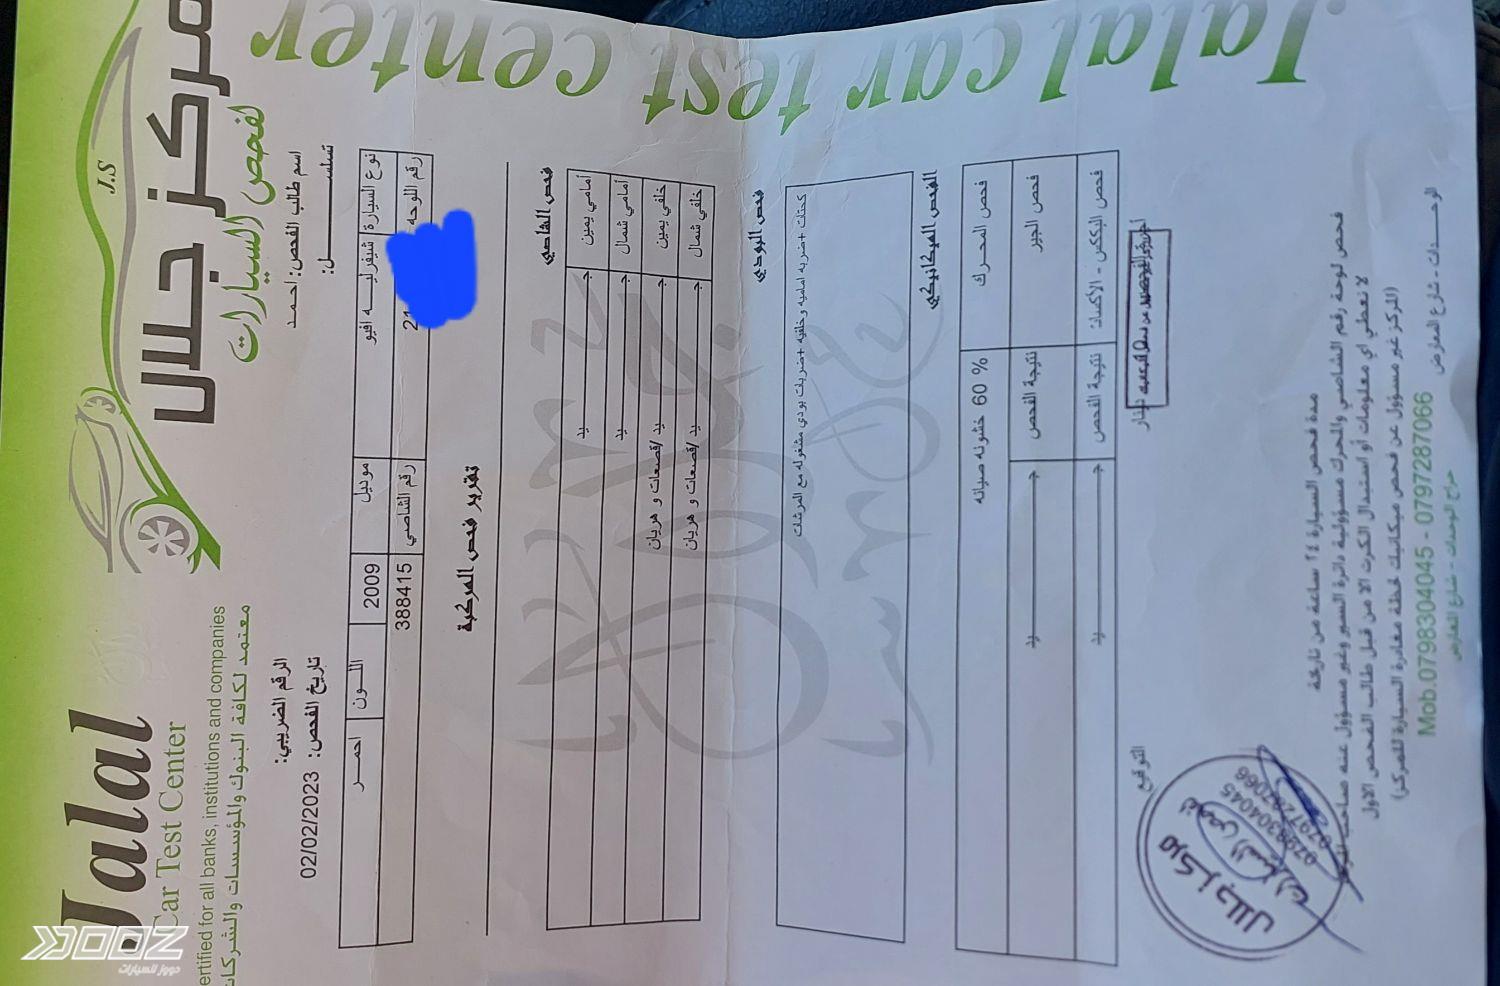 Jalal car test center
Jalal
Car Test Center
ertified for all banks, institutions and companies
معتمد لكافة البنوك والمؤسسات والشركات
مركز جلال
لفحص السيارات
J.S
تسلسل:
اسم طالب الفحص: احمد
الرقم الضريبي:
تاريخ الفحص: 02/02/2023
نوع السيارة شيفرليه افيو موديل 2009 اللون احمر
رقم اللوحه 21 رقم الشاصي 388415
تقرير فحص المركبة
فحص الشاصي
أمامي يمين جيد
أمامي شمال جيد
خلفي يمين جيد /قصعات و هريان
خلفي شمال جيد /قصعات و هريان
فحص البودي
كحتات +ضربه اماميه وخلفيه +ضربات بودي مشغوله مع المرشات
الفحص الميكانيكي
فحص المحرك 60 % خشونه صيانه
فحص الجير نتيجة الفحص جيد
فحص البككس - الأكسات نتيجة الفحص جيد
دينار
التوقيع
مركز جلال
لفحص السيارات
0798304045
0797287066
مدة فحص السيارة ٢٤ ساعة من تاريخة
فحص لوحة رقم الشاصي والمحرك مسؤولية دائرة السير وغير مسؤول عنه صاحب المركز
لا نعطي اي معلومات أو استبدال الكرت الا من قبل طالب الفحص الاول
(المركز غير مسؤول عن فحص ميكانيك لحظة مغادرة السيارة للمركز)
Mob.0798304045 - 0797287066
الوحدات - شارع المعارض
حراج الوحدات - شارع المعارض
DOOZ
دووز للسيارات